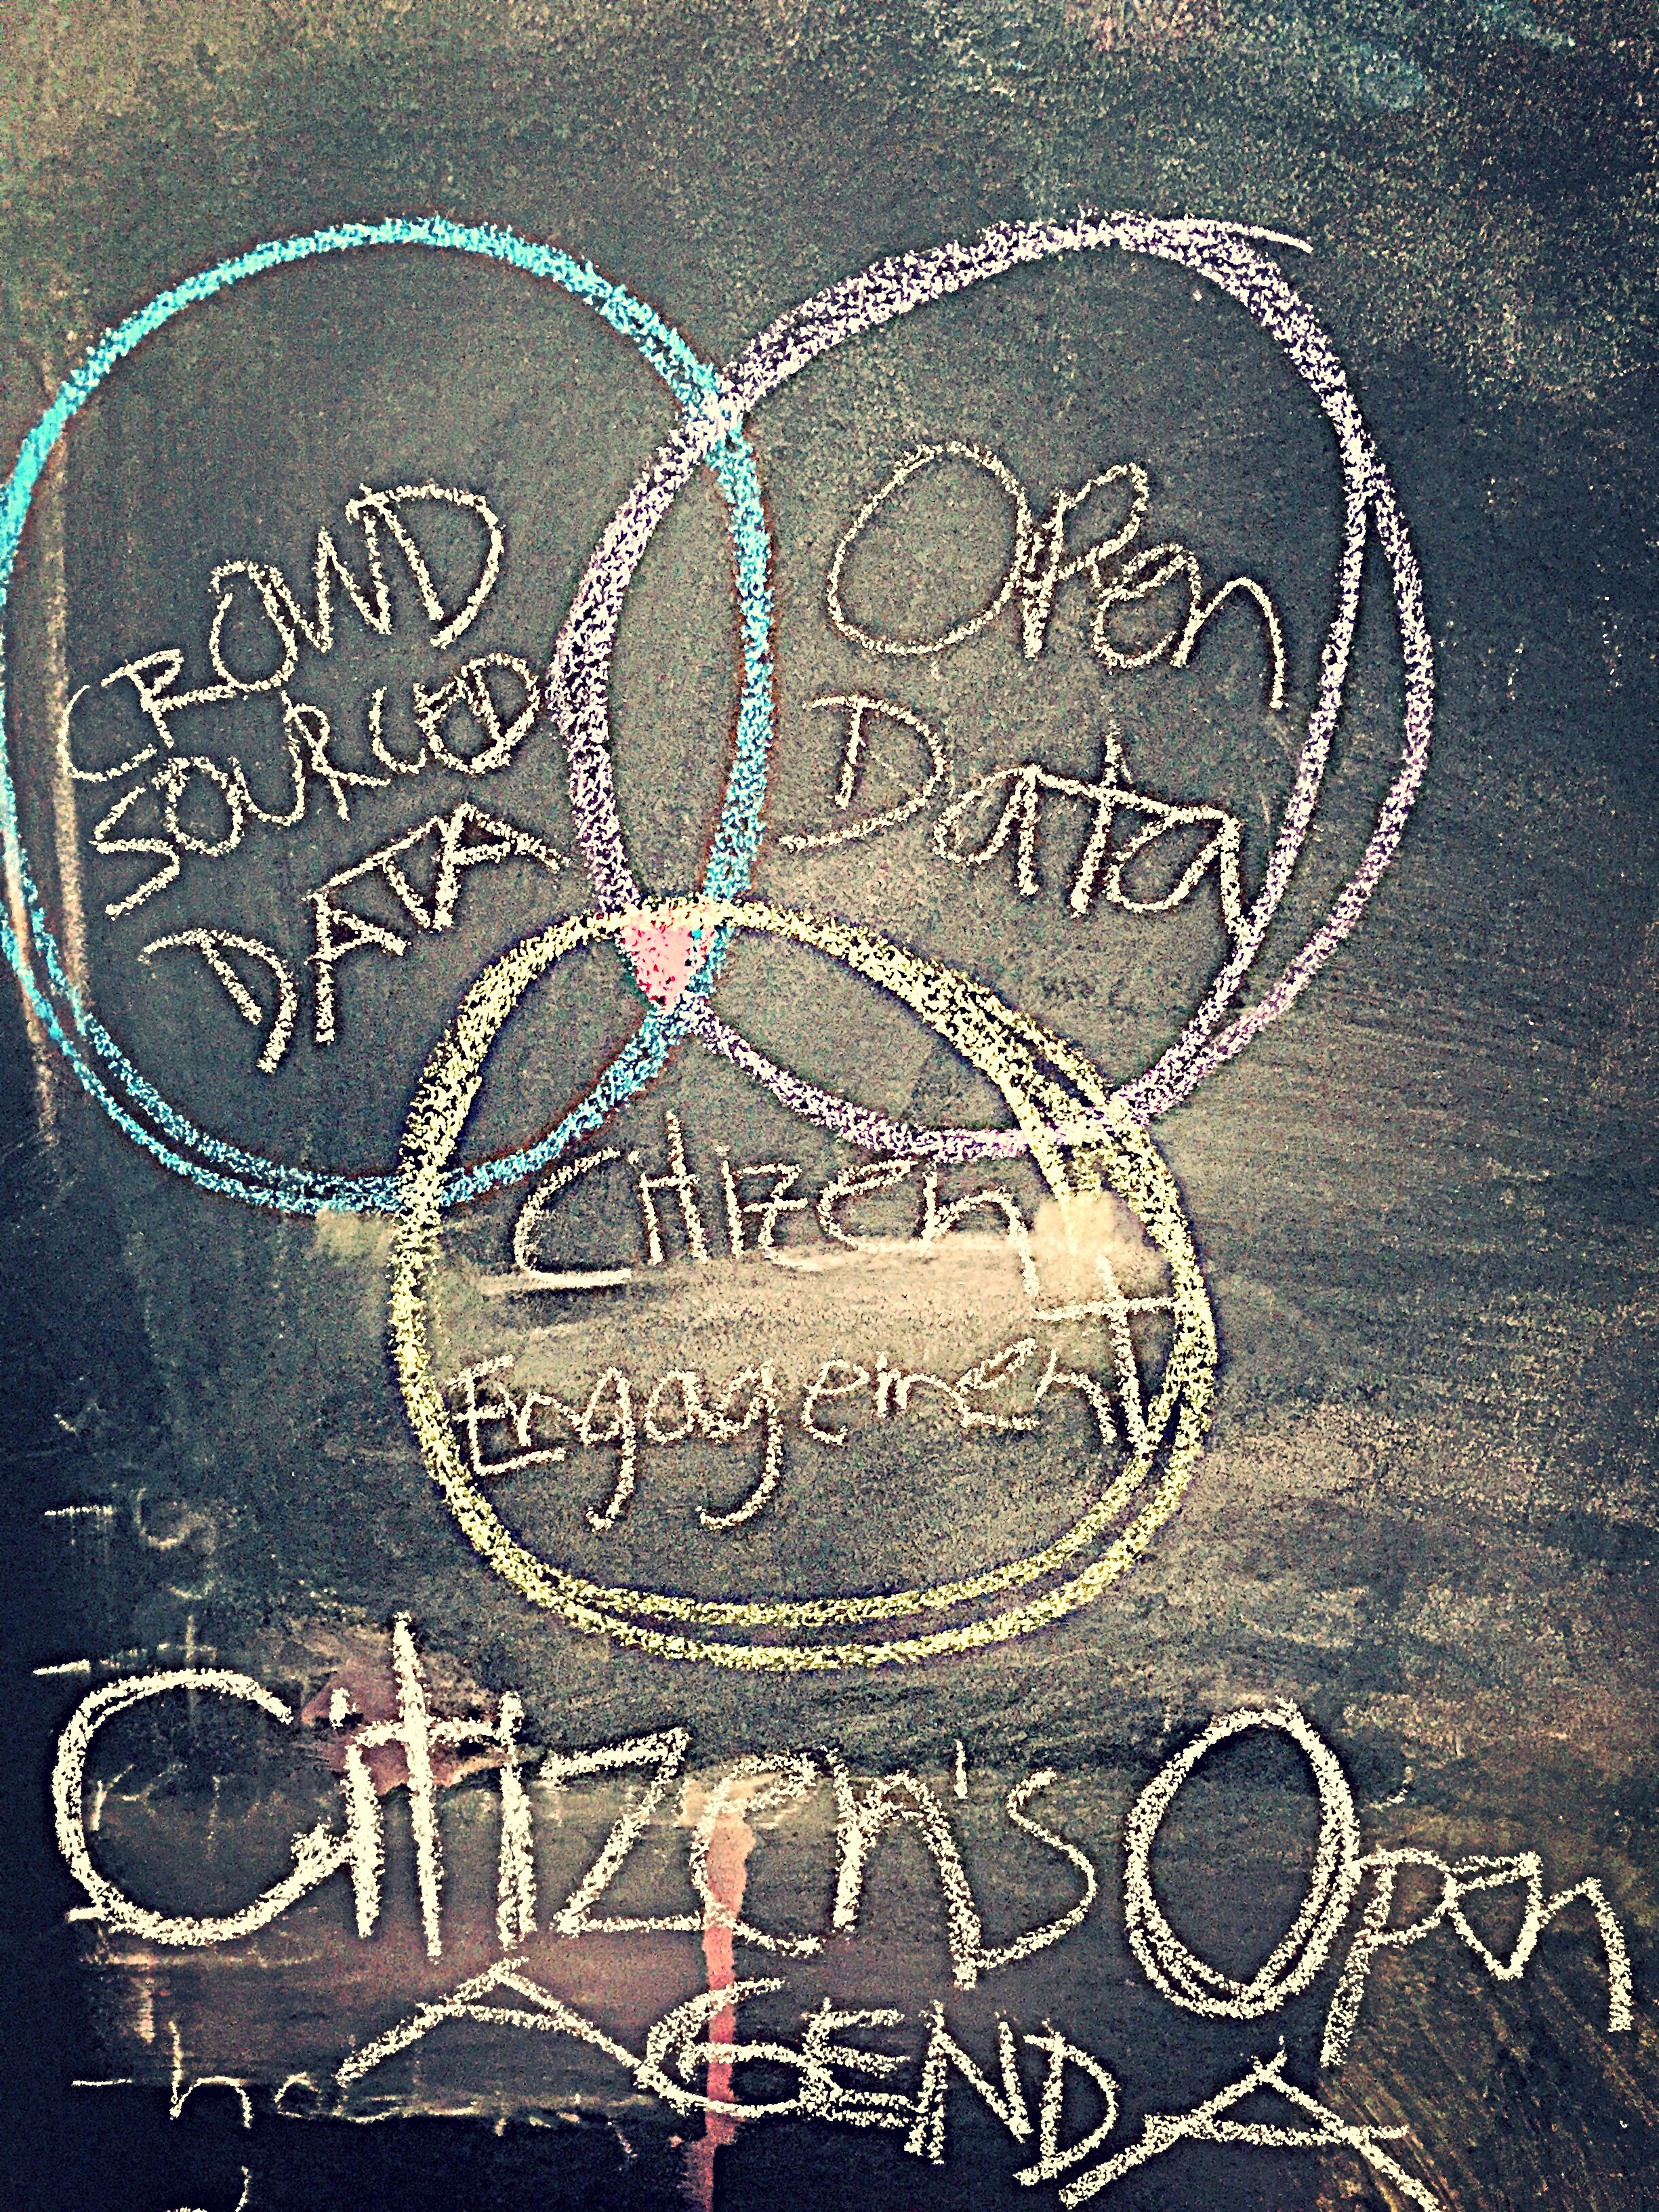 CROWD
SOURCED
DATA
Open
Data
Citizen
Engagement
Citizen's Open
AGENDA